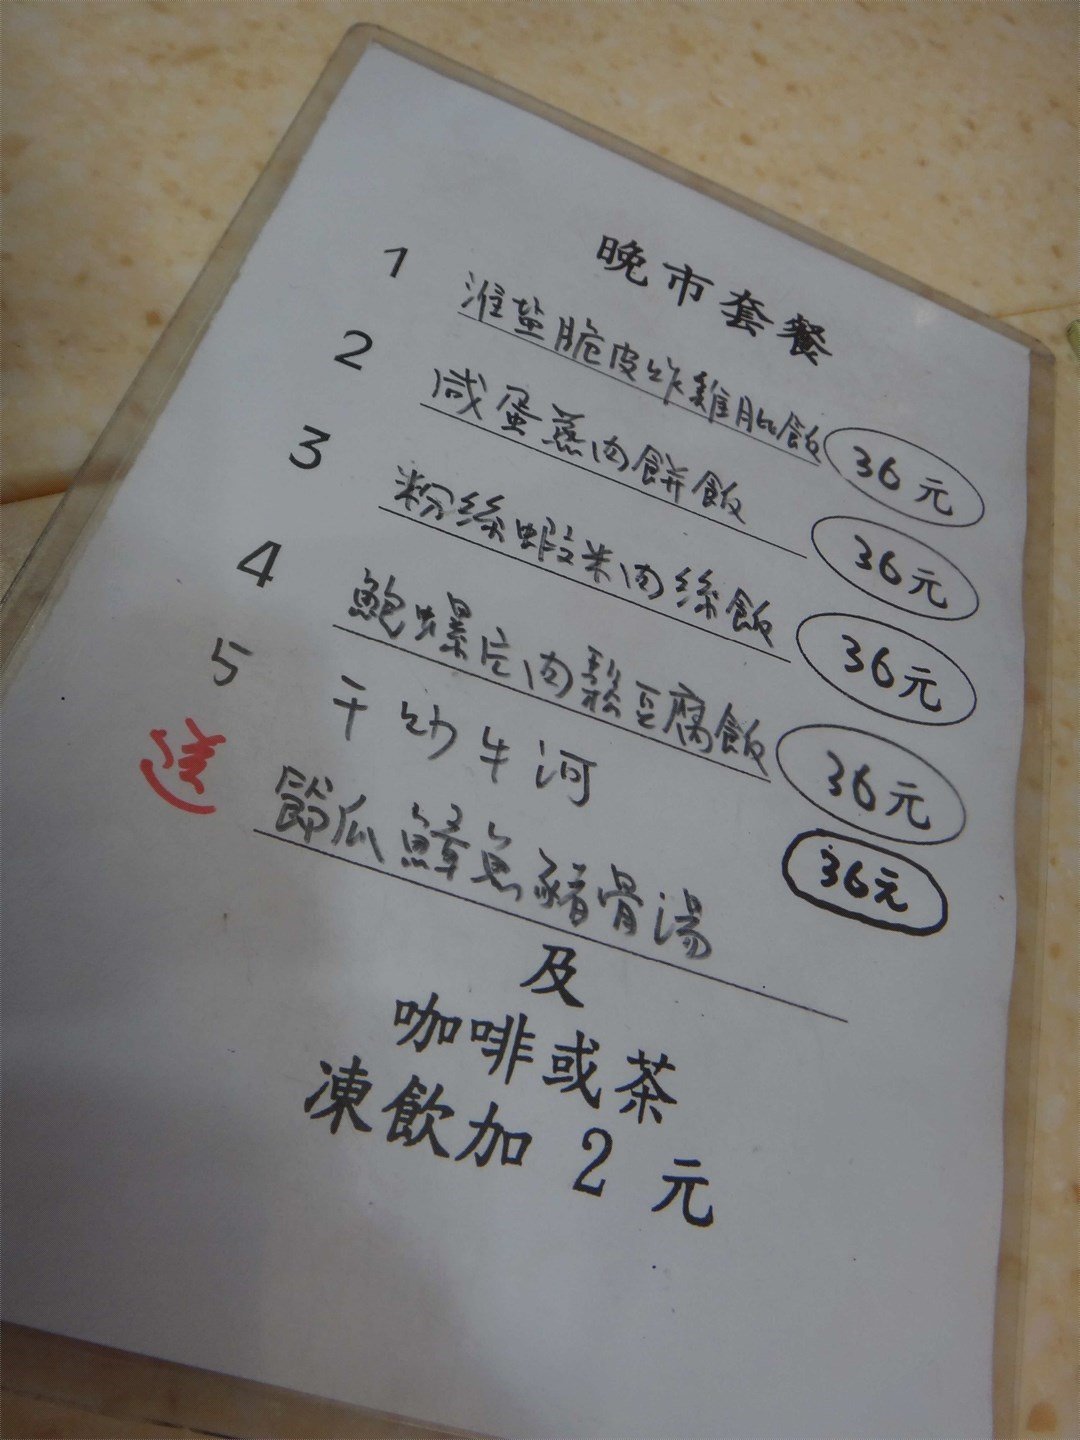 晚市套餐
1 淮盐脆皮炸雞肶飯 36元
2 咸蛋蒸肉餅飯 36元
3 粉絲蝦米肉絲飯 36元
4 鮑螺片肉鬆豆腐飯 36元
5 干炒牛河 36元
送 節瓜鱆魚豬骨湯
及
咖啡或茶
凍飲加 2 元